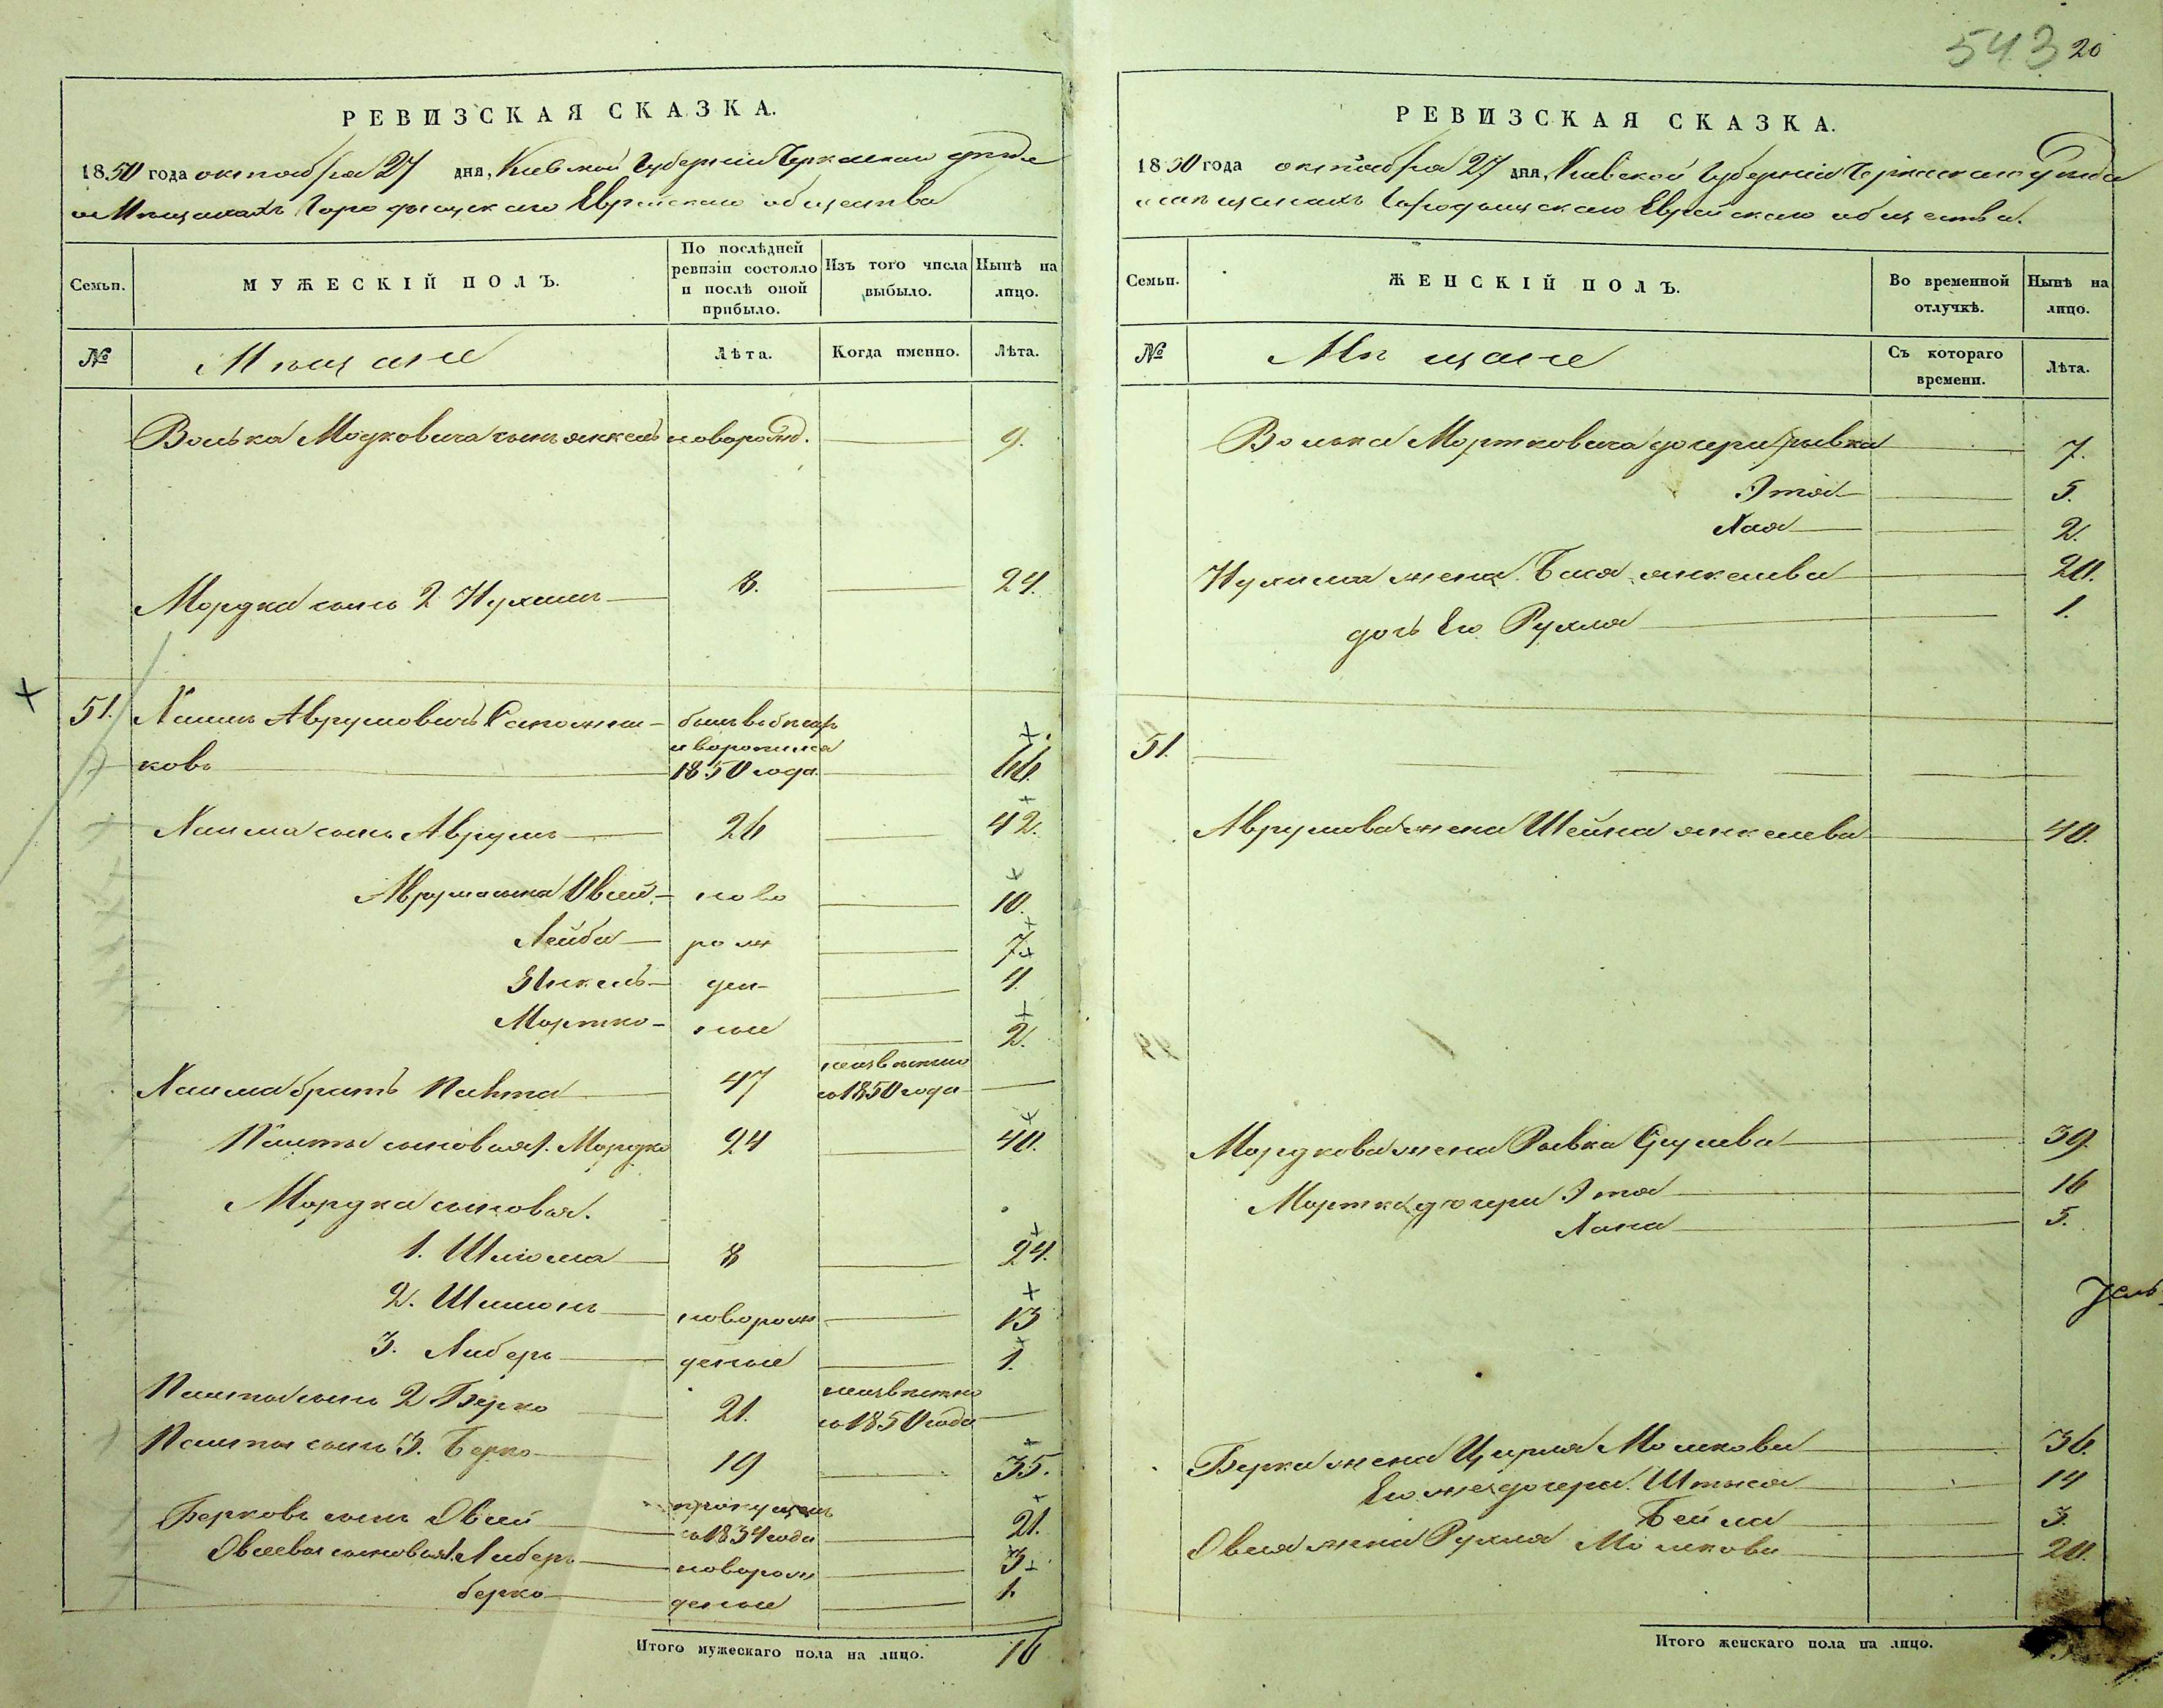 543 20
РЕВИЗСКАЯ СКАЗКА.
1850 года октября 27 дня, Киевской Губернии Черкаскаго уезда
о Мещанахъ Городищскаго Еврейскаго общества
Семьи.
МУЖЕСКІЙ ПОЛЪ.
По послѣдней ревизіи состояло и послѣ оной прибыло.
Изъ того числа выбыло.
Нынѣ на лицо.
№
Мещане
Лѣта.
Когда именно.
Лѣта.
Волька Модковича сынъ Янкель новорожд. 9.
Мордка сынъ 2 Нухимъ 8. 24.
51. Хаимъ Аврумовичъ Сапожни- былъ в бегахъ
ковъ и воротился
1850 года 66.
Хаима сынъ Аврумъ 26 42.
Аврума сына Овсей ново 10.
Лейба рож 7
Янкель ден- 4.
Мортко ные 2.
Хаима братъ 47 неизвестно
со 1850 года
сыновья 1. Мордко 24 40.
Мордка сыновья.
1. Шлюома 8 24.
2. Шимонъ новорож 13
3. Либеръ денные 1.
сынъ 2 Берко 21. неизвестно
со 1850 года
сынъ 3. Берко 19 35.
Берковъ сынъ Овсей пропущенъ
со 1834 года 21.
Овсеева сыновья 1. Либеръ новорож 3
берко денные 1.
Итого мужескаго пола на лицо. 16
РЕВИЗСКАЯ СКАЗКА.
1850 года октября 27 дня, Киевской Губерніи Черкаскаго уезда
о мещанахъ Городищскаго Еврейскаго общества.
Семьи.
ЖЕНСКІЙ ПОЛЪ.
Во временной отлучкѣ.
Нынѣ на лицо.
№
Мещане
Съ котораго времени.
Лѣта.
Волька Мортковича дочери Рывка 7.
Этя 5.
Хая 2.
Нухима жена Бася Янкелева 20.
дочь Его Рухля 1.
51.
Аврумова жена Шейна Янкелева 40.
Мордкова жена Рывка Срулева 39.
Мортка дочери Этя 16
Хана 5.
Берка жена Цирля Мошкова 36.
Его же дочери. 14
Бейла 3.
Овсея жена Рухля Мошкова 20.
Итого женскаго пола на лицо.